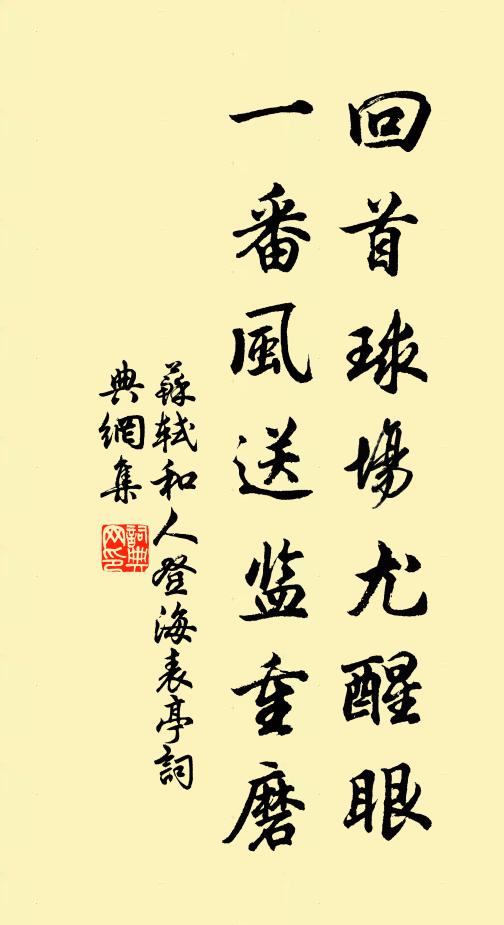 回首球場尤醒眼
一番風送监重磨
蘇軾和人登海表亭詞
典網集
詞典网印